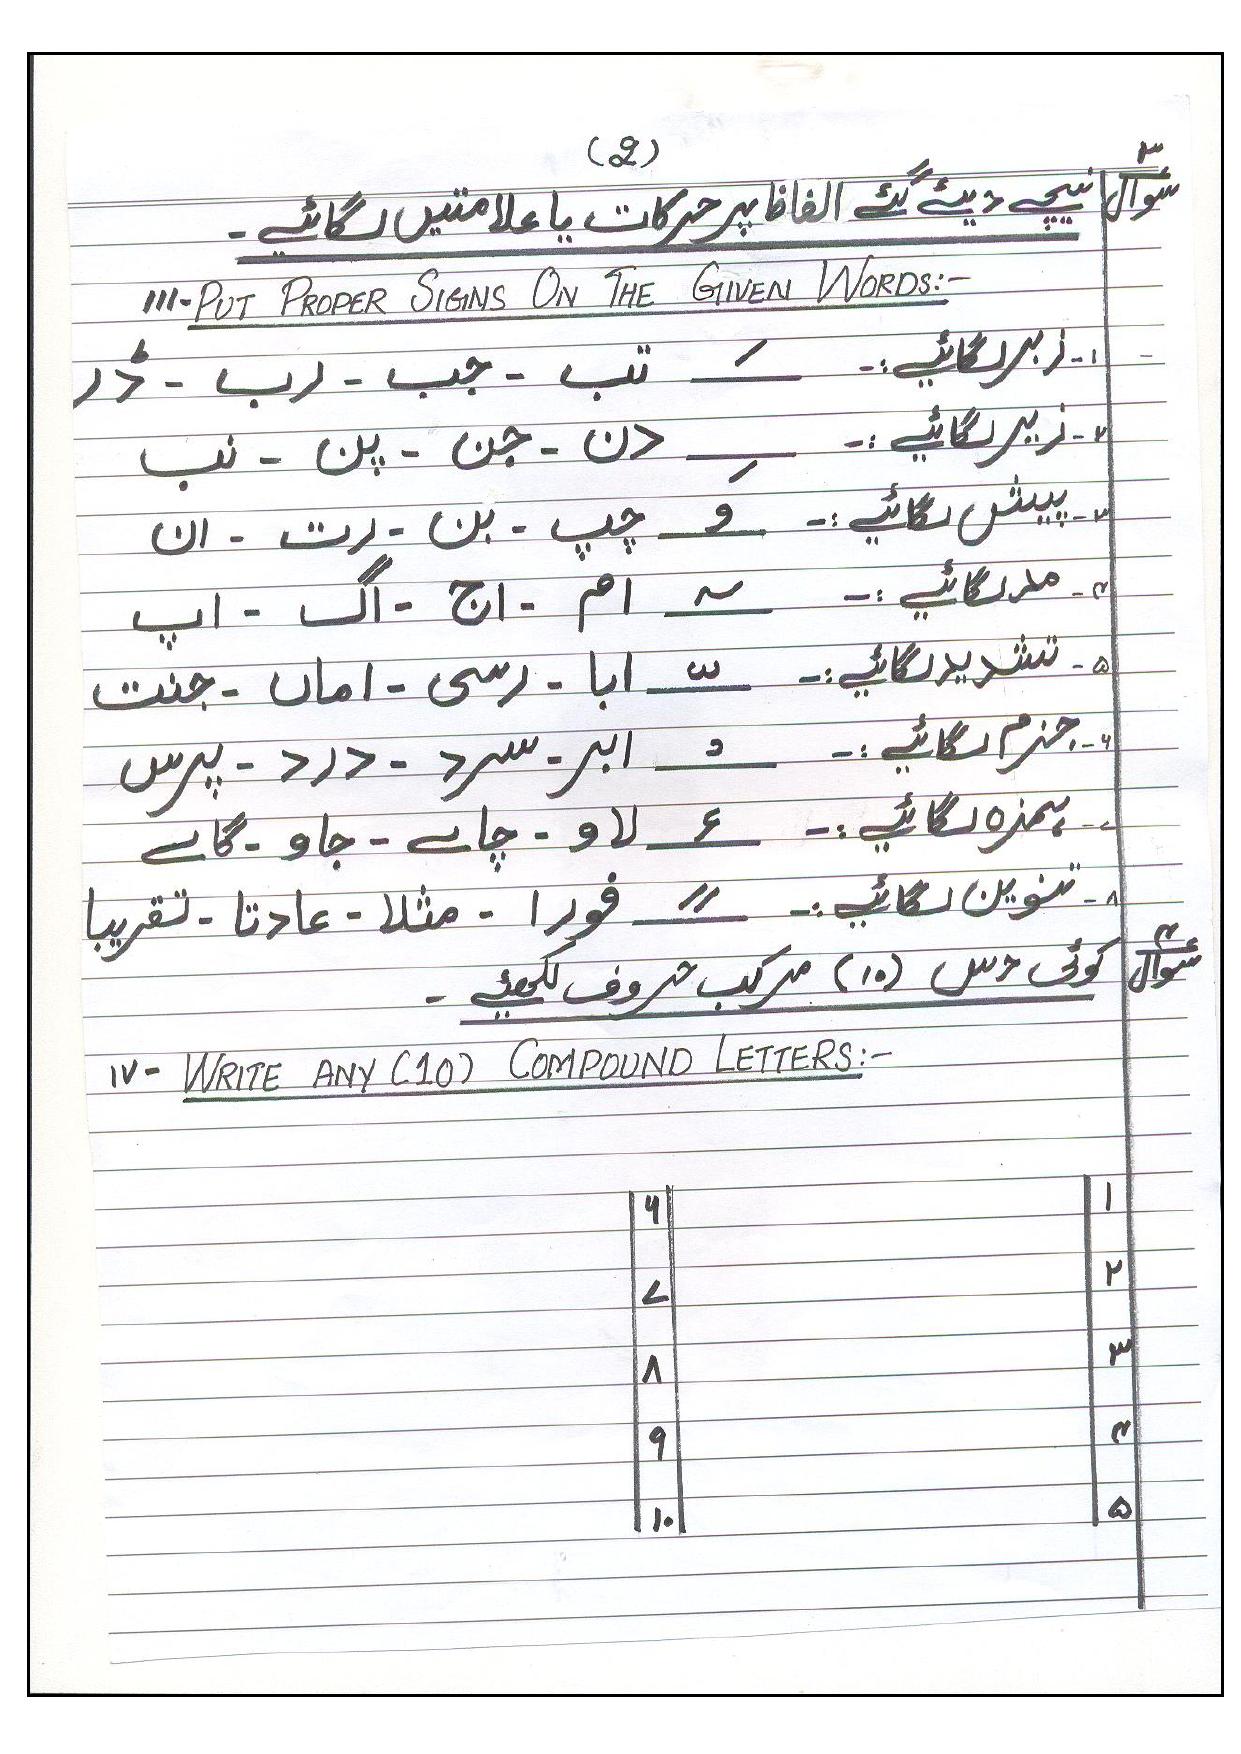 (2)
سوال ۳ نیچے دیئے گئے الفاظ پر حرکات یا علامتیں لگائیے ۔
III- PUT PROPER SIGNS ON THE GIVEN WORDS:-
۱- زبر لگائیے :- َ تب - جب - رب - ڈر
۲- زیر لگائیے :- ِ دن - جن - پن - نب
۳- پیش لگائیے :- ُ چپ - بن - رت - ان
۴- مد لگائیے :- ٓ ام - اج - اگ - اپ
۵- تشدید لگائیے :- ّ ابا - رسی - اماں - جنت
۶- جزم لگائیے :- ْ ابر - سرد - درد - پرس
۷- ہمزہ لگائیے :- ء لاو - چاے - جاو - گاے
۸- تنوین لگائیے :- ً فورا - مثلا - عادتا - تقریبا
سوال ۴ کوئی دس (۱۰) مرکب حروف لکھئیے ۔
IV- WRITE ANY (10) COMPOUND LETTERS:-
۱ ۶
۲ ۷
۳ ۸
۴ ۹
۵ ۱۰